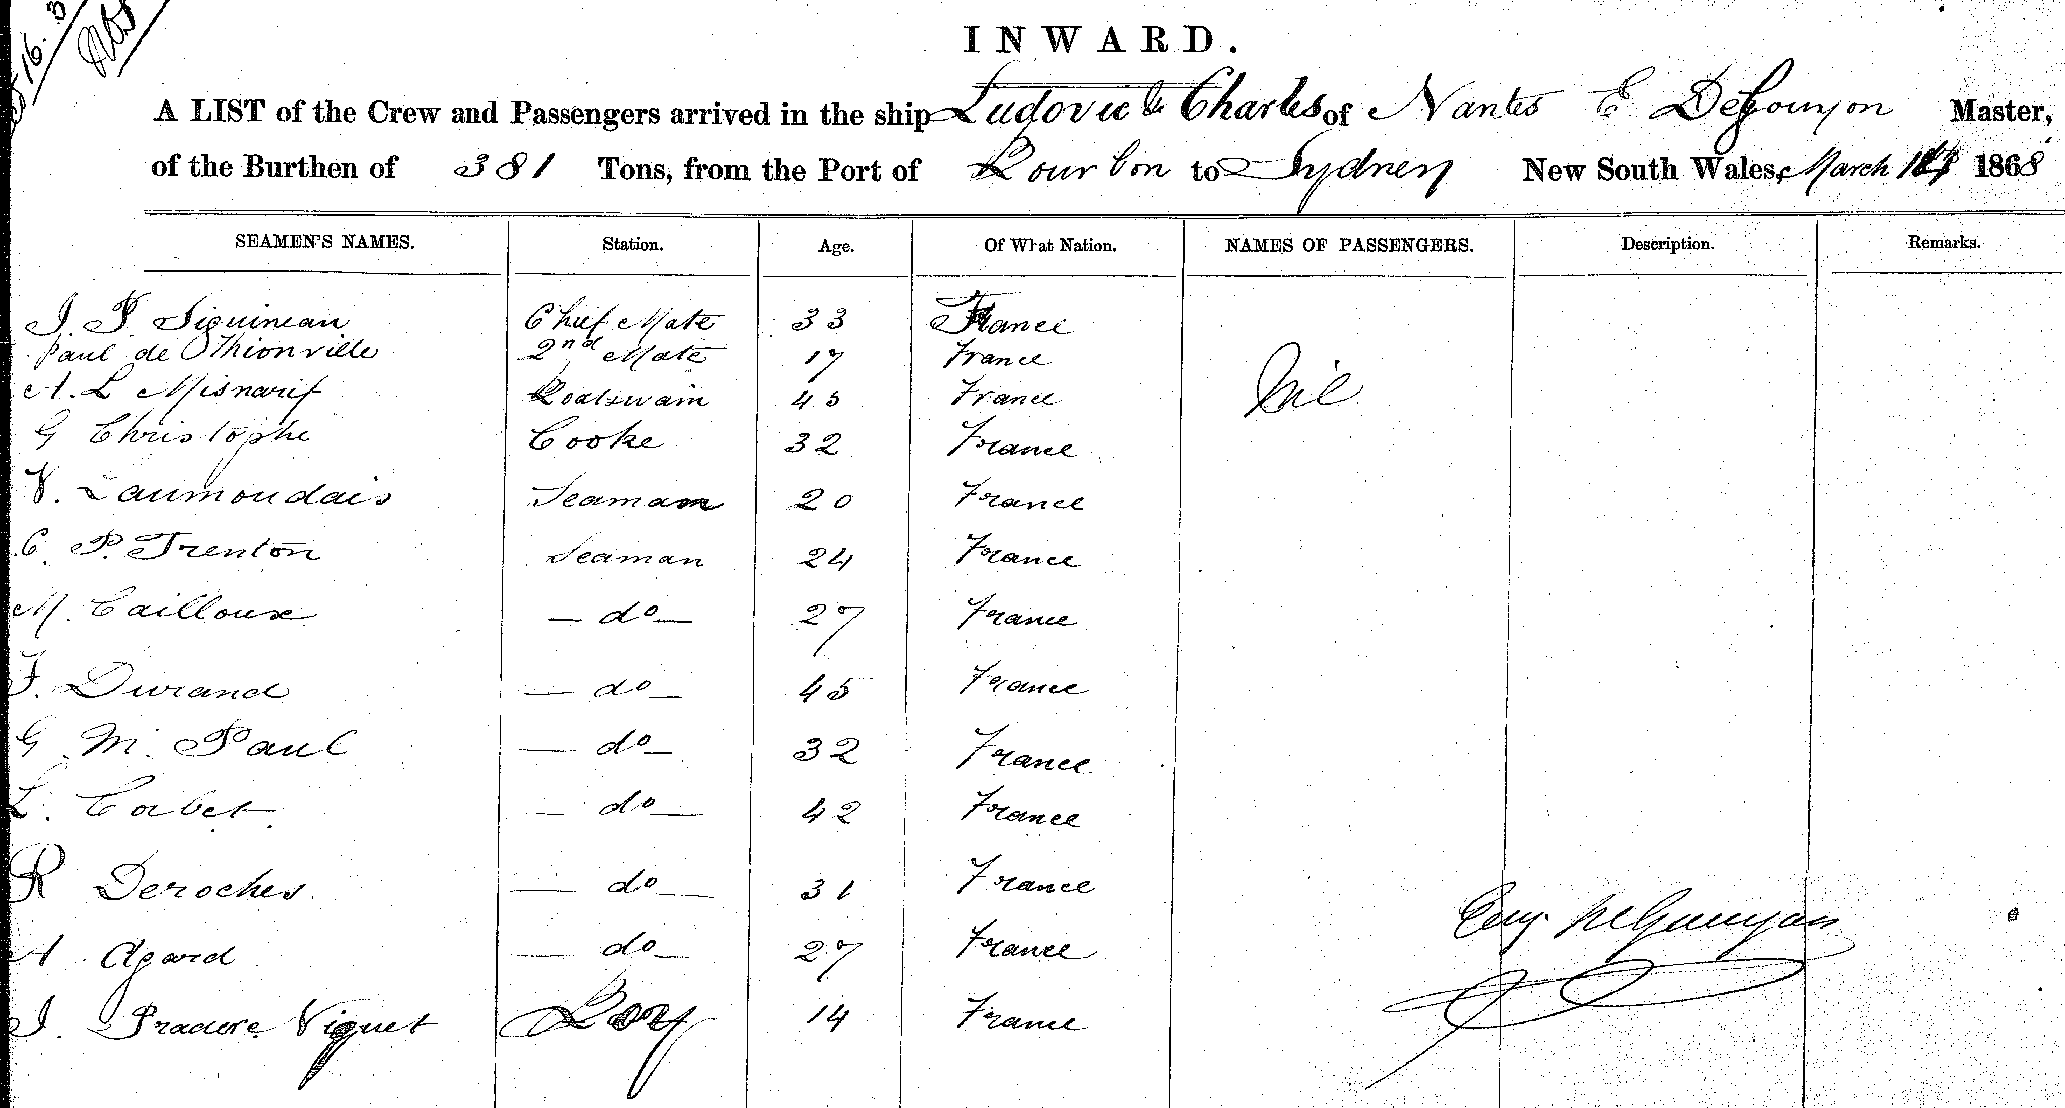 16. 3
INWARD.
A LIST of the Crew and Passengers arrived in the ship Ludovic & Charles of Nantes E DeGouyon Master,
of the Burthen of 381 Tons, from the Port of Bourbon to Sydney New South Wales, March 1868
SEAMEN'S NAMES. Station. Age. Of What Nation. NAMES OF PASSENGERS. Description. Remarks.
J. P. Siguineau Chief Mate 33 France
Paul de Thionville 2nd Mate 17 France
A. L Misnarif Boatswain 45 France Nil
G Christophe Cooke 32 France
V. Laumoudais Seaman 20 France
C. P. Trenton Seaman 24 France
M. Cailloux — do — 27 France
F. Durand — do — 45 France
G. M. Paul — do — 32 France
L. Corbet — do — 42 France
R Deroches — do — 31 France
A. Agard — do — 27 France
J. Pradere Viguet Boy 14 France
Eug. DeGouyon